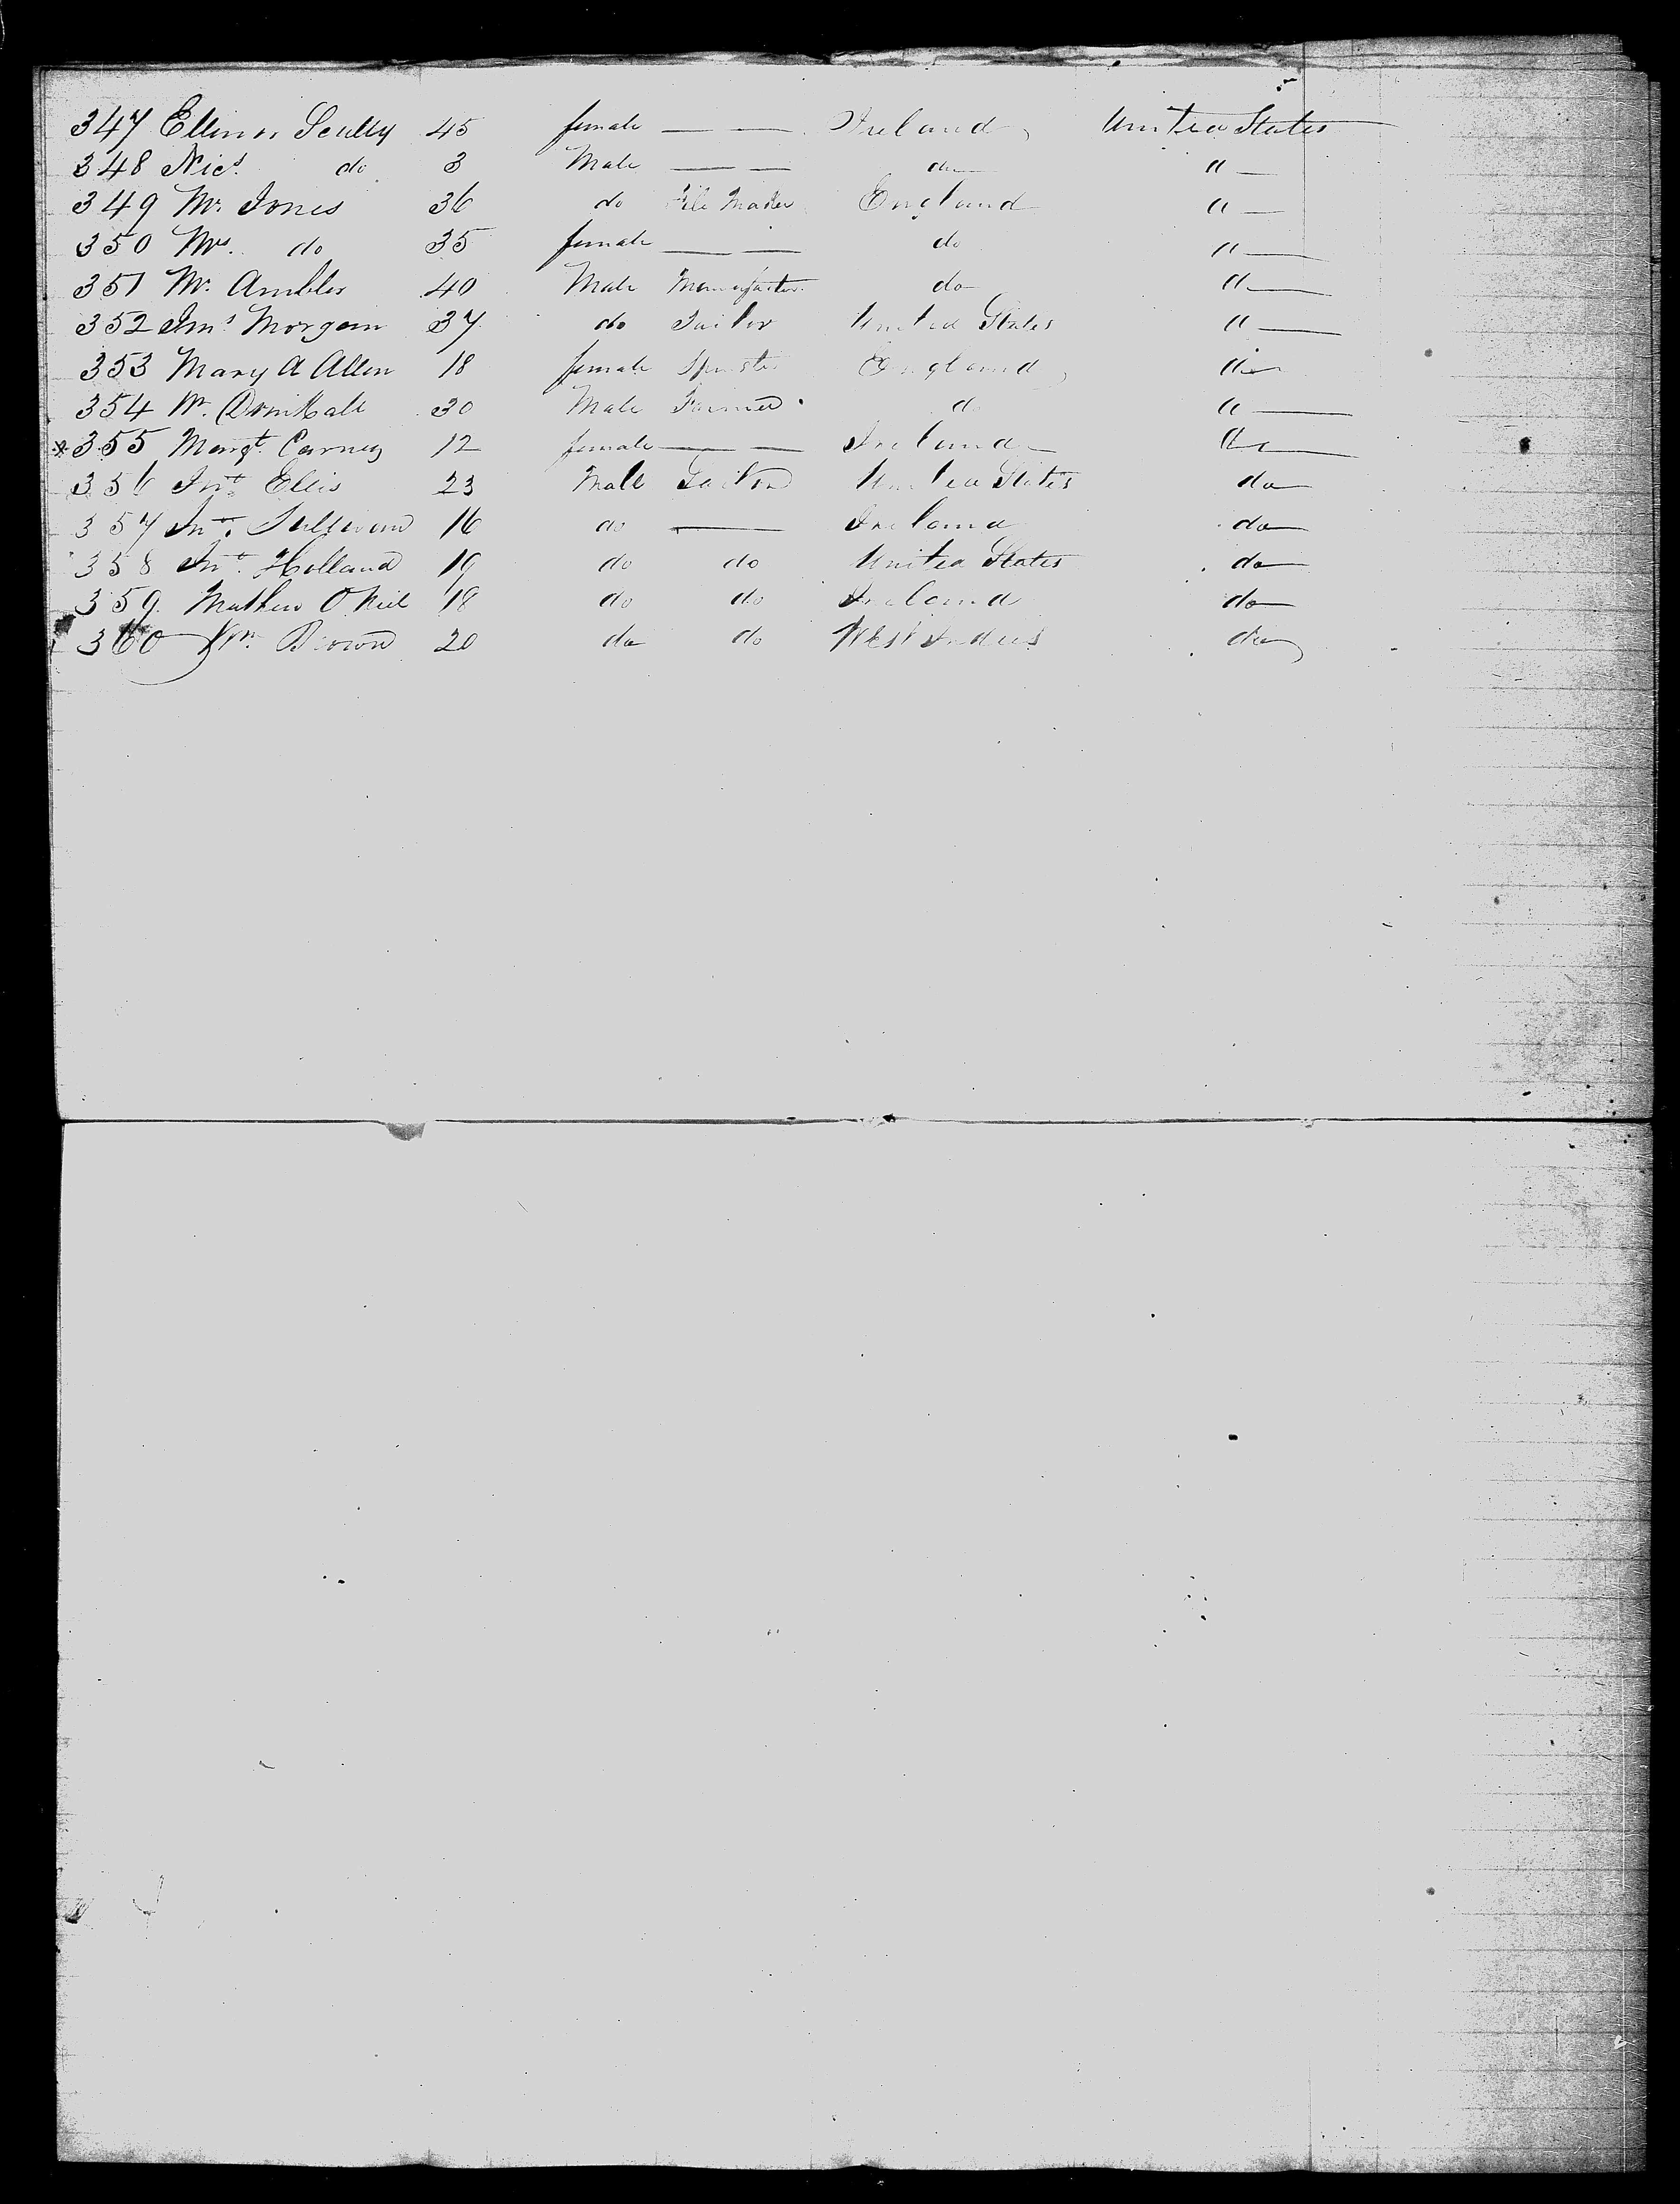 347 Ellinor Scully 45 female — — Ireland United States
348 Nics. do 3 Male — — do "
349 Mr. Jones 36 do File Maker England "
350 Mrs. do 35 female — — do "
351 Mr. Ambler 40 Male Manufactur. do "
352 Jms. Morgan 37 do Tailor United States "
353 Mary A Allen 18 female Spinster England "
354 Wm. Drinkall 30 Male Farmer do "
*355 Margt. Carney 12 female — — Ireland "
356 Jno. Ellis 23 Male United States do
357 Jno. Sullivan 16 do — Ireland do
358 Jno. Holland 19 do do United States do
359 Mathew O Neil 18 do do Ireland do
360 Wm. Brown 20 do do West Indies do